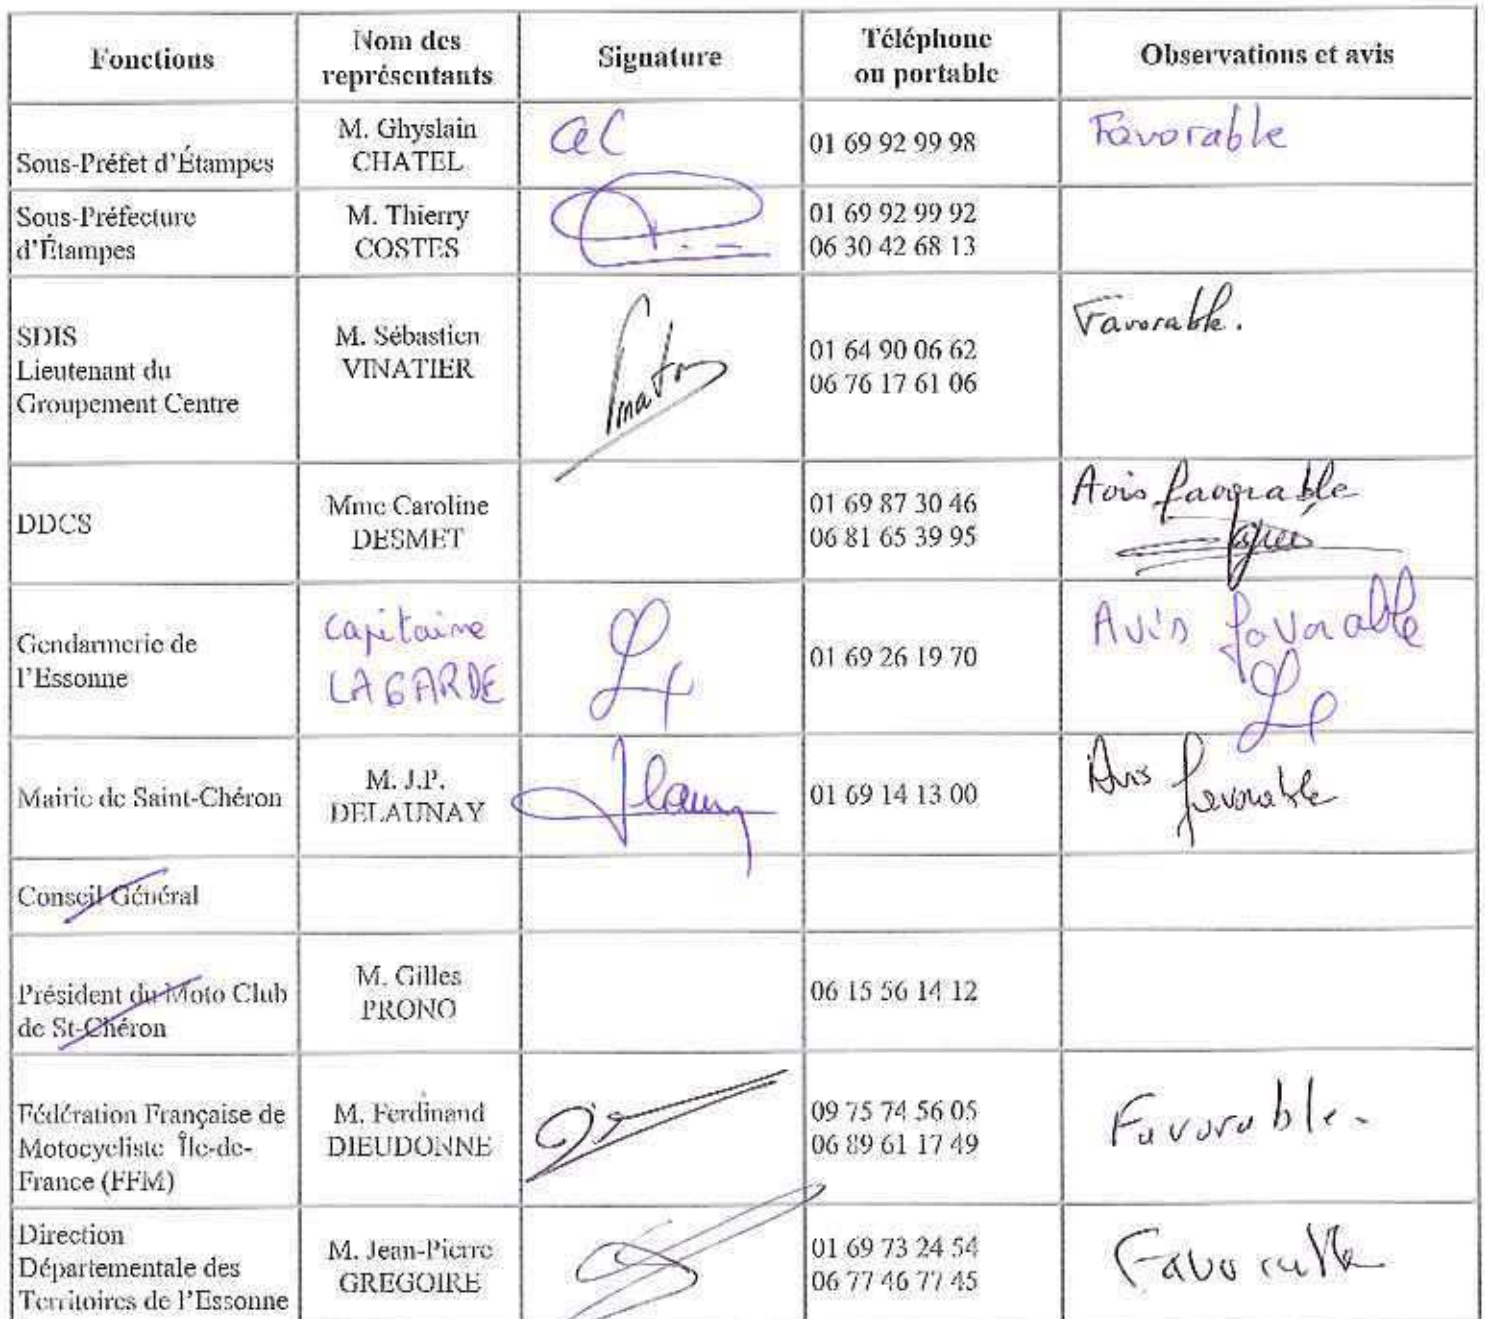 Fonctions
Nom des
représentants
Signature
Téléphone
ou portable
Observations et avis
Sous-Préfet d'Étampes
M. Ghyslain
CHATEL
01 69 92 99 98
Favorable
Sous-Préfecture
d'Étampes
M. Thierry
COSTES
01 69 92 99 92
06 30 42 68 13
SDIS
Lieutenant du
Groupement Centre
M. Sébastien
VINATIER
01 64 90 06 62
06 76 17 61 06
Favorable.
DDCS
Mme Caroline
DESMET
01 69 87 30 46
06 81 65 39 95
Avis favorable
Gendarmerie de
l'Essonne
Capitaine
LAGARDE
01 69 26 19 70
Avis favorable
Mairie de Saint-Chéron
M. J.P.
DELAUNAY
01 69 14 13 00
Avis favorable
Conseil Général
Président du Moto Club
de St-Chéron
M. Gilles
PRONO
06 15 56 14 12
Fédération Française de
Motocycliste Île-de-
France (FFM)
M. Ferdinand
DIEUDONNE
09 75 74 56 05
06 89 61 17 49
Favorable.
Direction
Départementale des
Territoires de l'Essonne
M. Jean-Pierre
GREGOIRE
01 69 73 24 54
06 77 46 77 45
Favorable